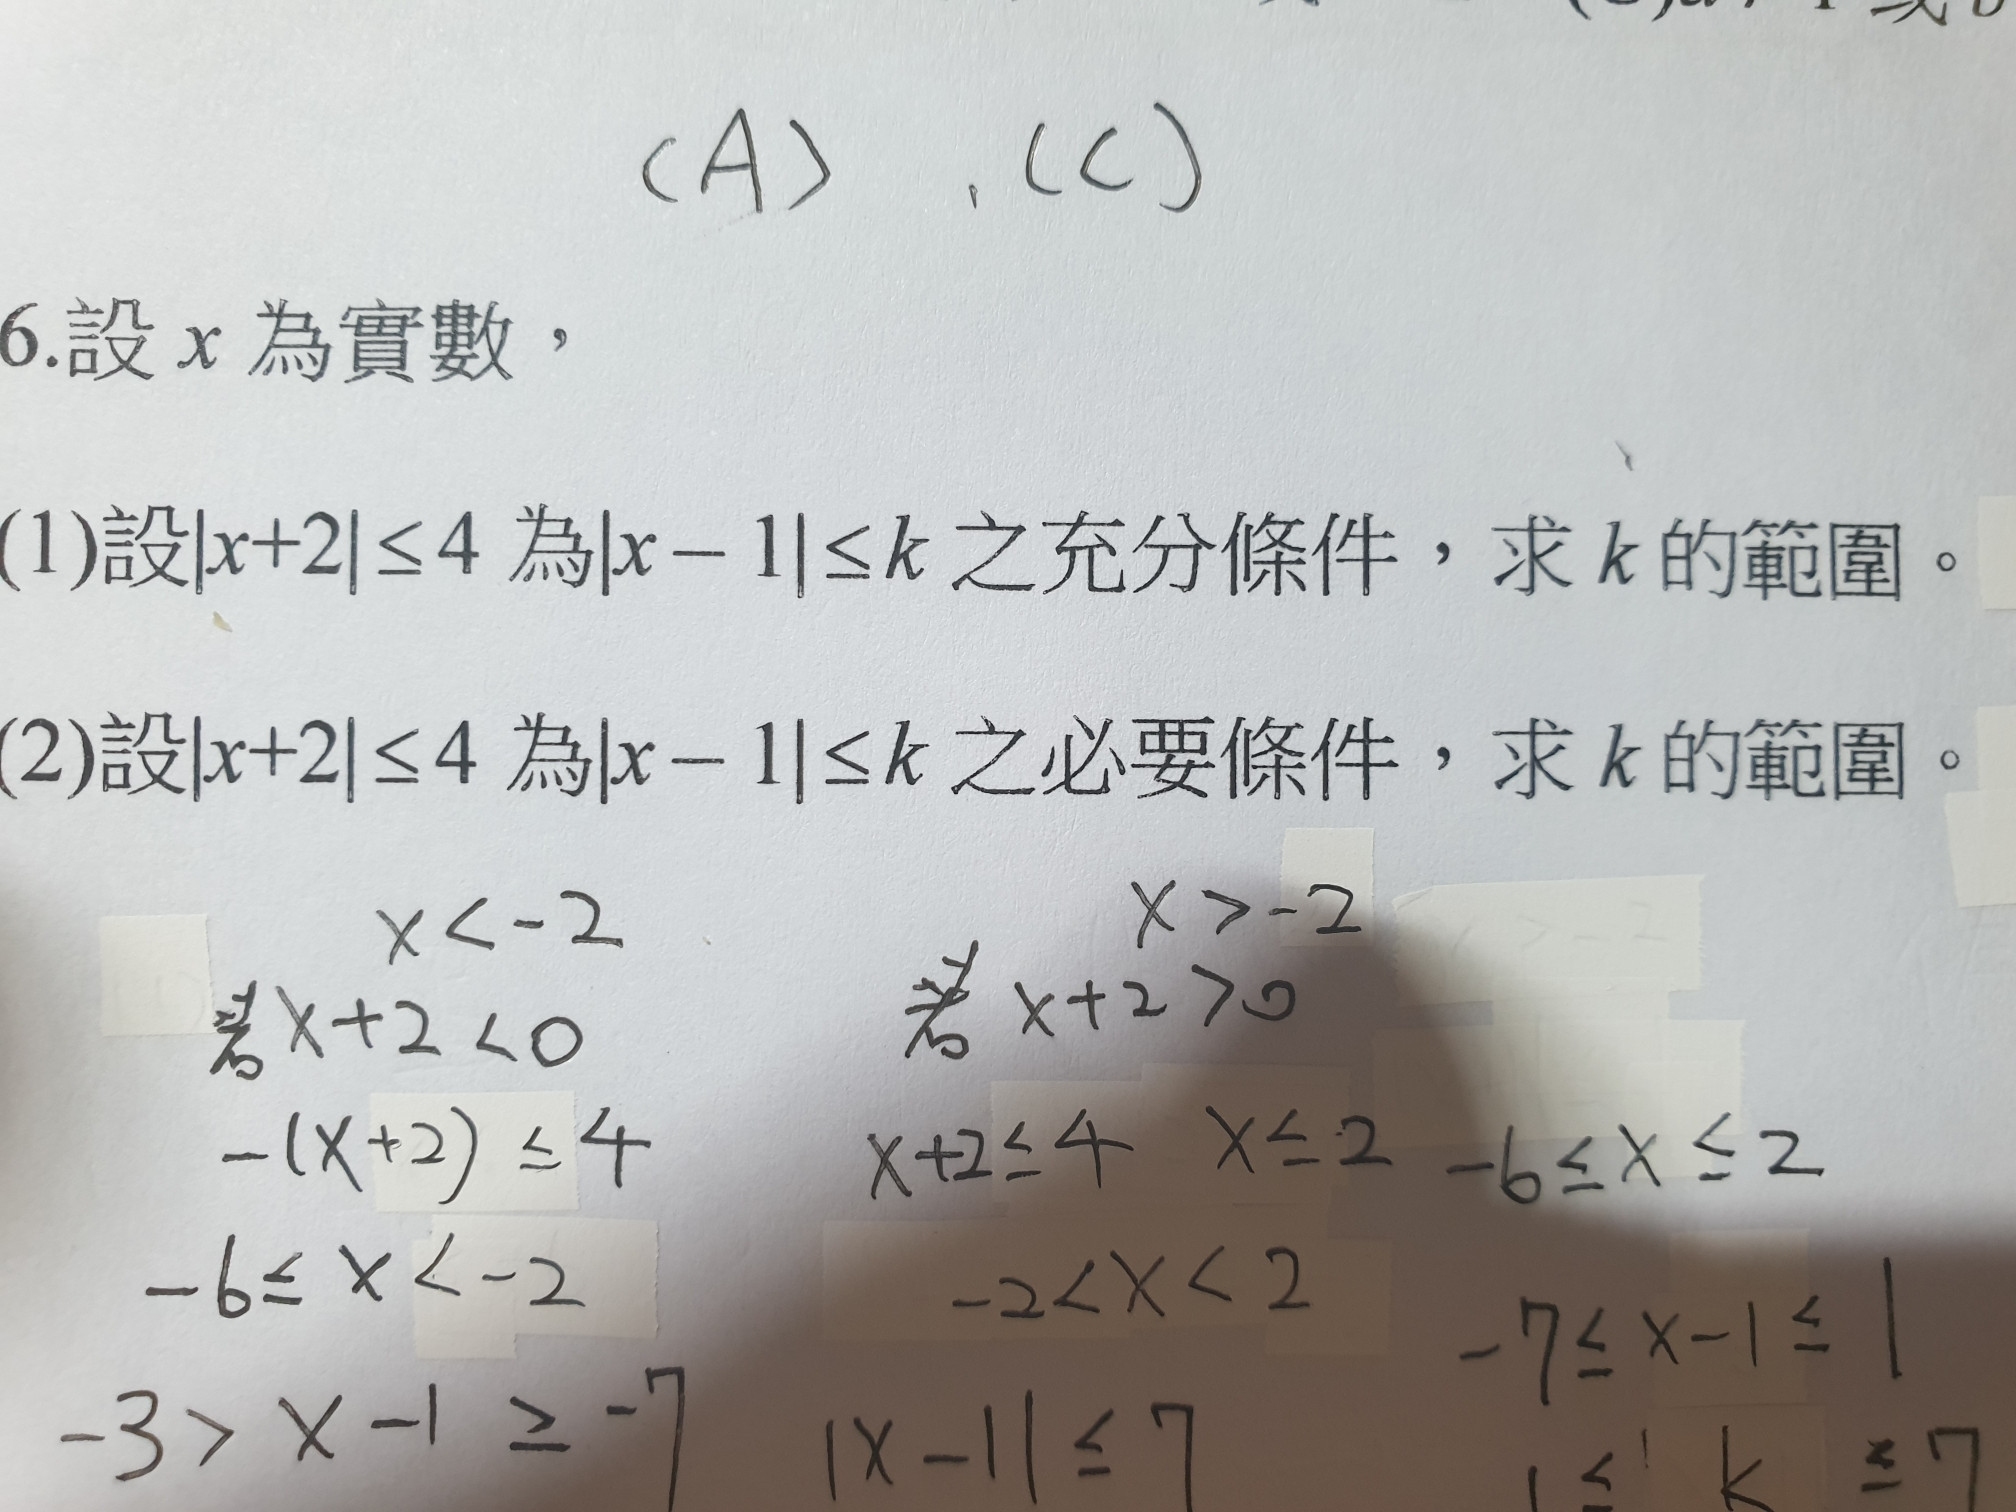 (A) , (C)
6.設 x 為實數，
(1)設|x+2|≤4 為|x－1|≤k 之充分條件，求 k 的範圍。
(2)設|x+2|≤4 為|x－1|≤k 之必要條件，求 k 的範圍。
x<-2 x>-2
若 x+2<0 若 x+2>0
-(x+2)≤4 x+2≤4 x≤2 -6≤x≤2
-6≤x<-2 -2<x<2
-7≤x-1≤1
-3>x-1≥-7 |x-1|≤7
1≤ k ≤7